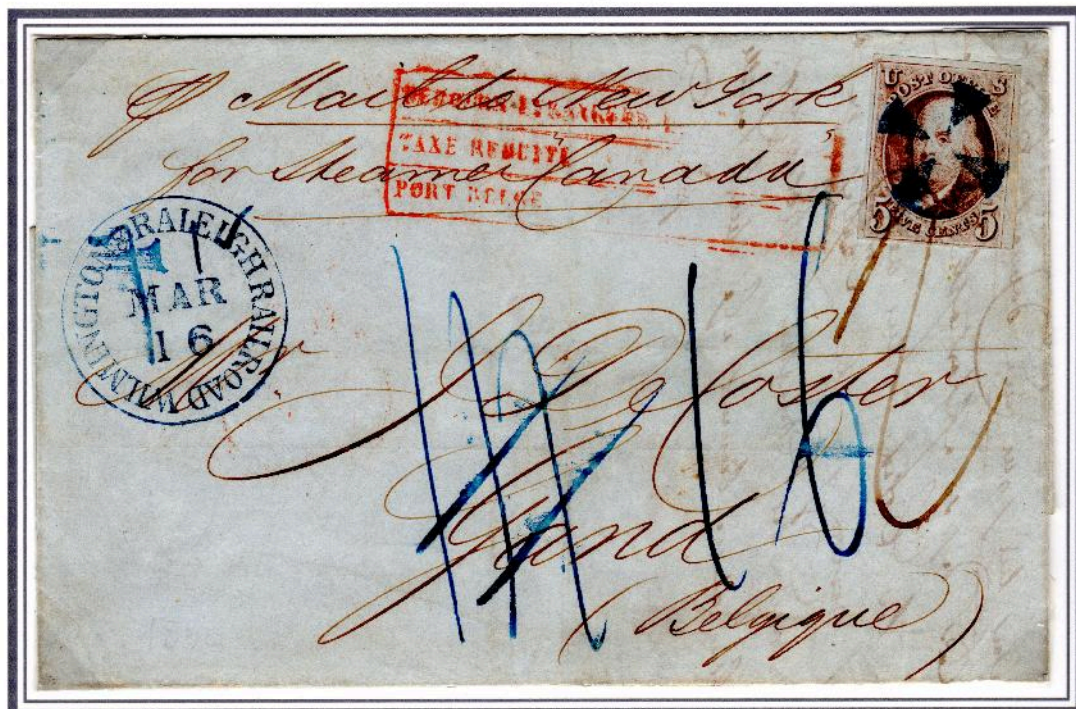 p Mail to New York
for Steamer "Canada"
TAXE REDUITE
PORT BELGE
U S
POST OFFICE
5 FIVE CENTS 5
WILMINGTON & RALEIGH RAILROAD
MAR
16
Mr J. De Coster
Gand
(Belgique)
16